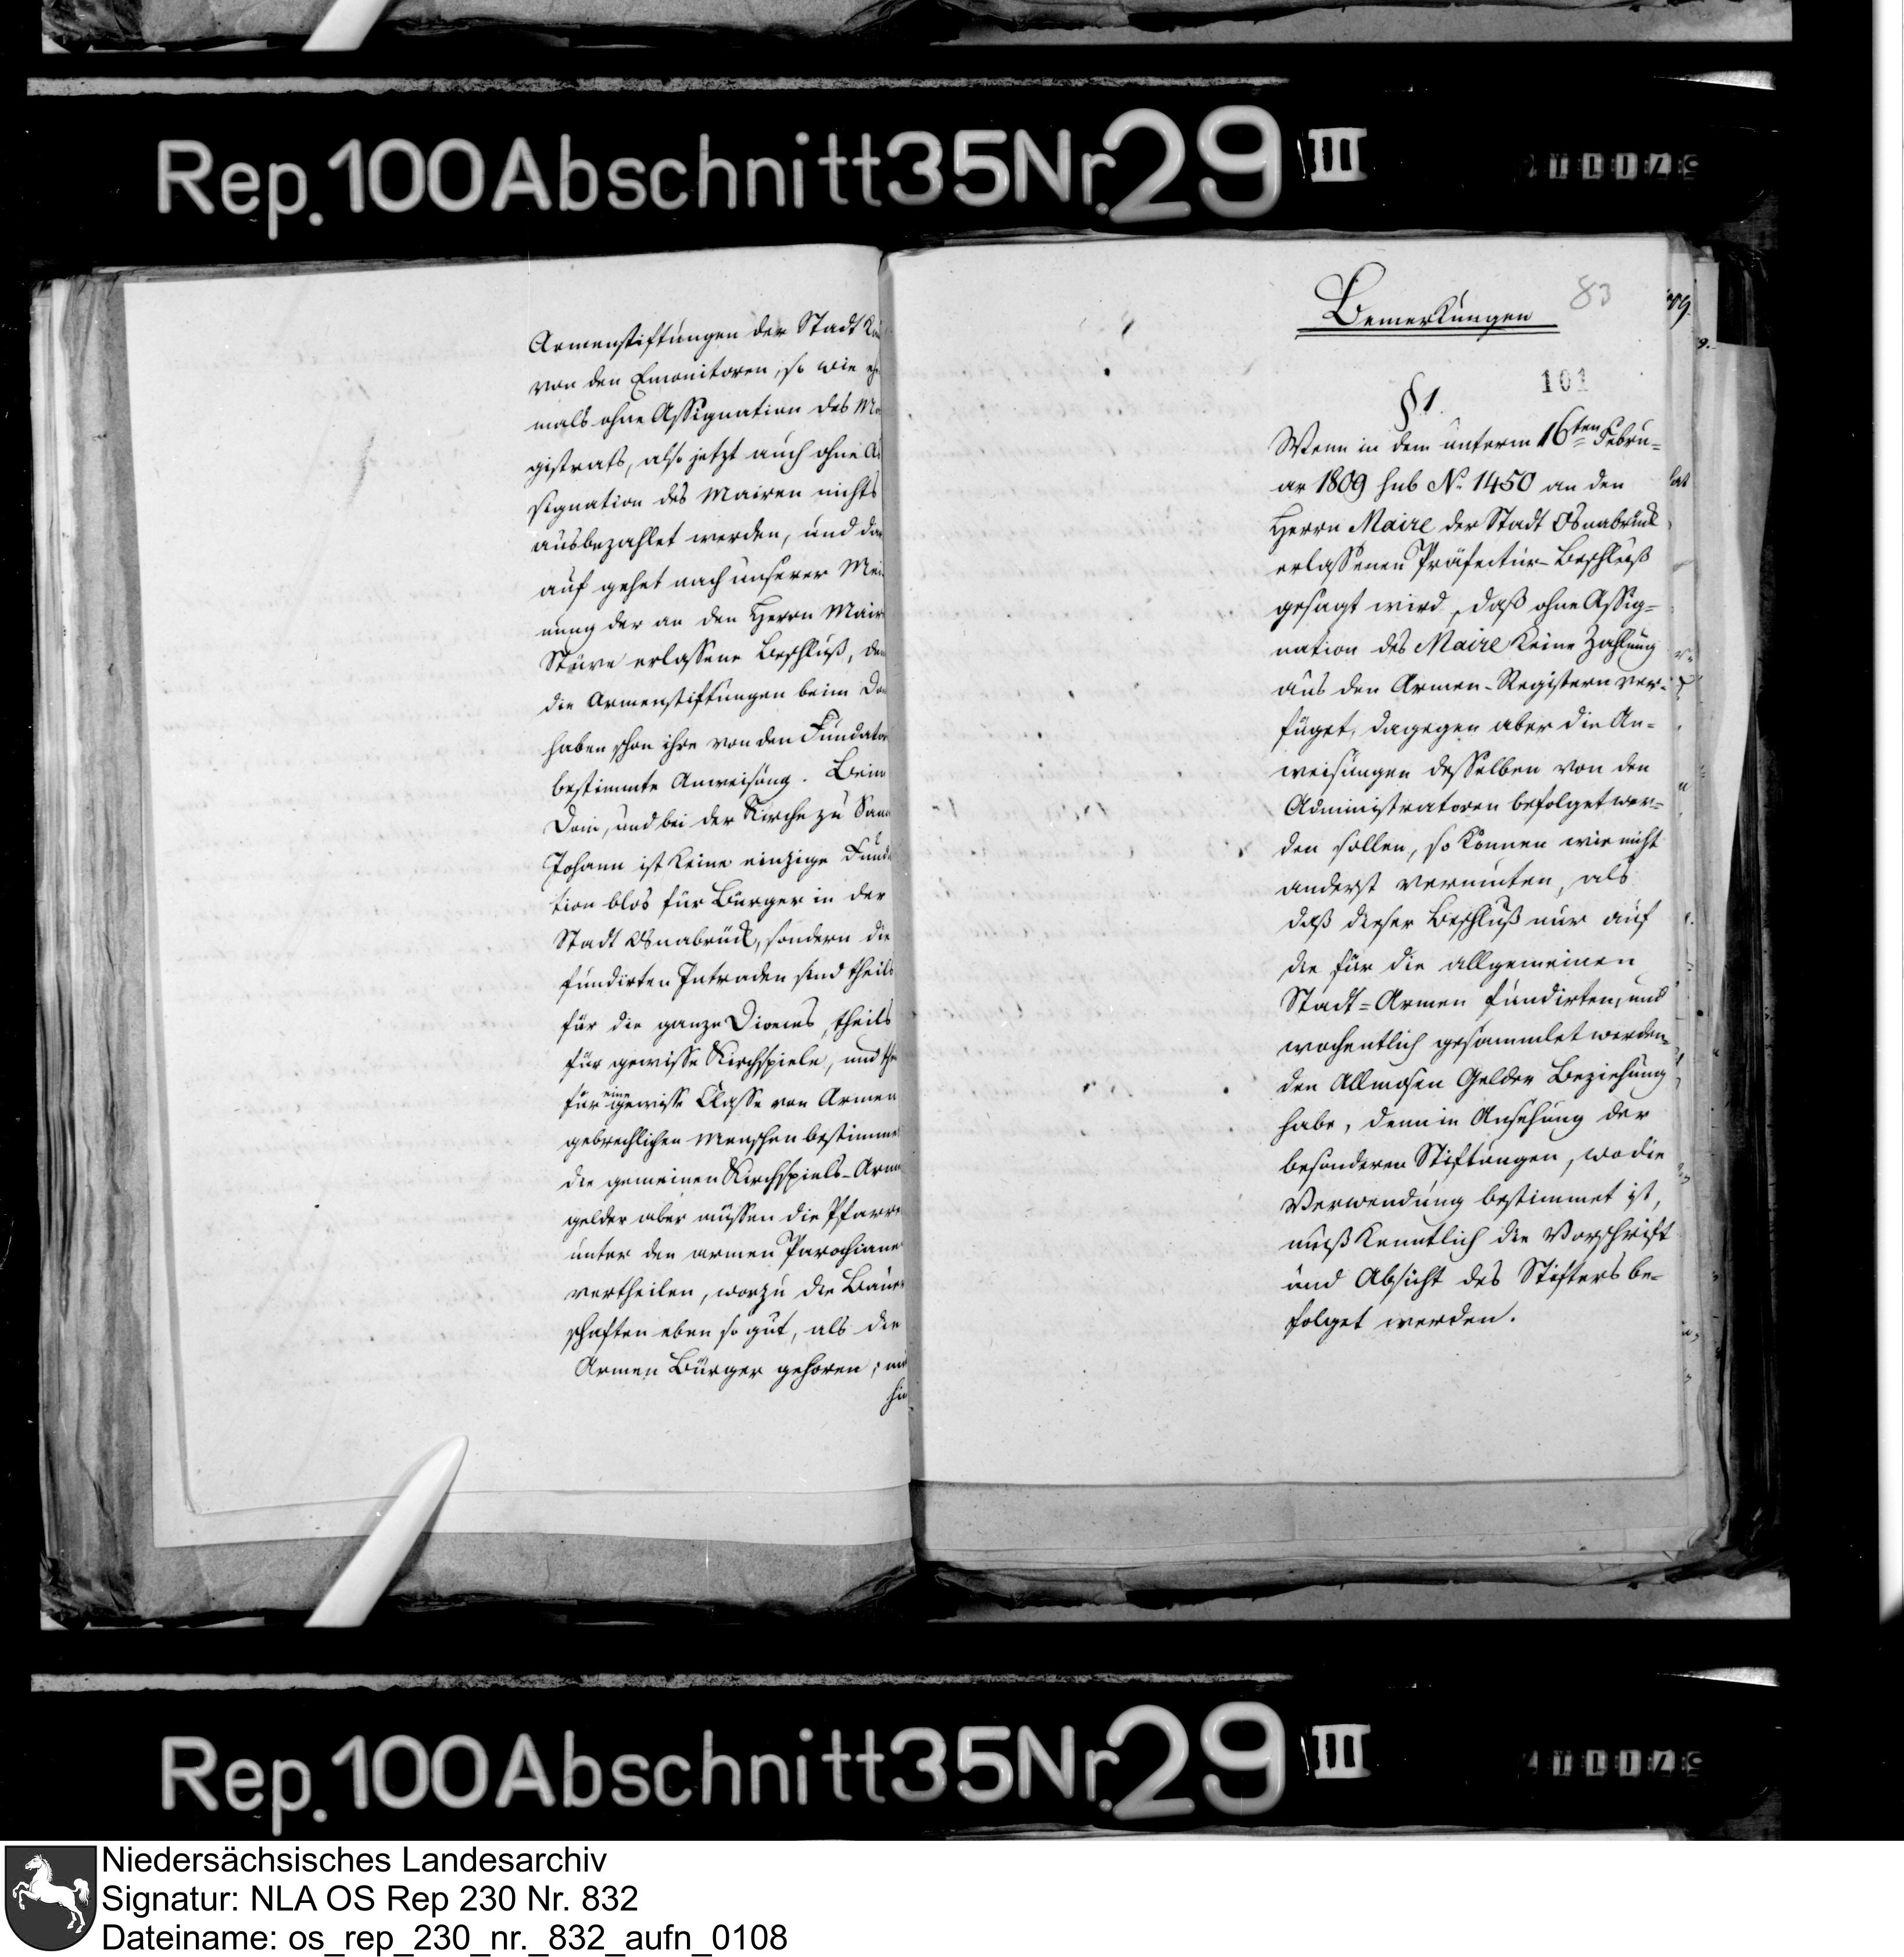 Rep. 100 Abschnitt 35 Nr. 29 III
Armenstiftungen der Stadt
von den Emonitoren, so wie
mals ohne Assignation des Ma
gistrats, also jetzt auch ohne As
signation des Mairen nichts
ausbezahlet werden, und dar
auf gehet nach unserer Mei
nung der an den Herrn Maire
Stüve erlassene Beschluß, den
die Armenstiftungen beim Do
haben schon ihre von den Fundator
bestimmte Anweisung. Beim
Dom, und bei der Kirche zu Sanct
Johann ist keine einzige Funda
tion blos für Bürger in der
Stadt Osnabrück, sondern die
fundirten Intraden sind theils
für die ganze Dioeces, theils
für gewisse Kirchspiele, und the
für eine gewisse Classe von Armen
gebrechlichen Menschen bestimmet
die gemeinen Kirchspiels-Armen
gelder aber müssen die Pfarrer
unter den armen Parochianen
vertheilen, worzu die Bauer
schaften eben so gut, als die
Armen Bürger gehoren; mit
hin
Bemerkungen
83
101
§ 1.
Wenn in dem unterm 16ten Febru=
ar 1809 sub No. 1450 an den
Herrn Maire der Stadt Osnabrück
erlassenen Präfectur-Beschluß
gesagt wird, daß ohne Assig=
nation des Maire keine Zahlung
aus den Armen-Registern ver=
füget, dagegen aber die An=
weisungen desselben von den
Administratoren befolget wer=
den sollen, so können wir nicht
anderst vermuten, als
daß dieser Beschluß nur auf
die für die allgemeinen
Stadt=Armen fundirten, und
wochentlich gesammlet werden=
den Allmosen Gelder Beziehung
habe, denn in Ansehung der
besonderen Stiftungen, wo die
Verwendung bestimmet ist,
muß kenntlich die Vorschrift
und Absicht des Stifters be=
folget werden.
Rep. 100 Abschnitt 35 Nr. 29 III
Niedersächsisches Landesarchiv
Signatur: NLA OS Rep 230 Nr. 832
Dateiname: os_rep_230_nr._832_aufn_0108